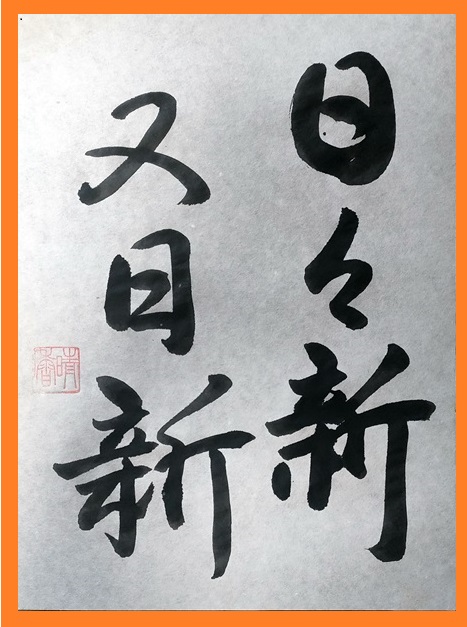 日々新
又日新